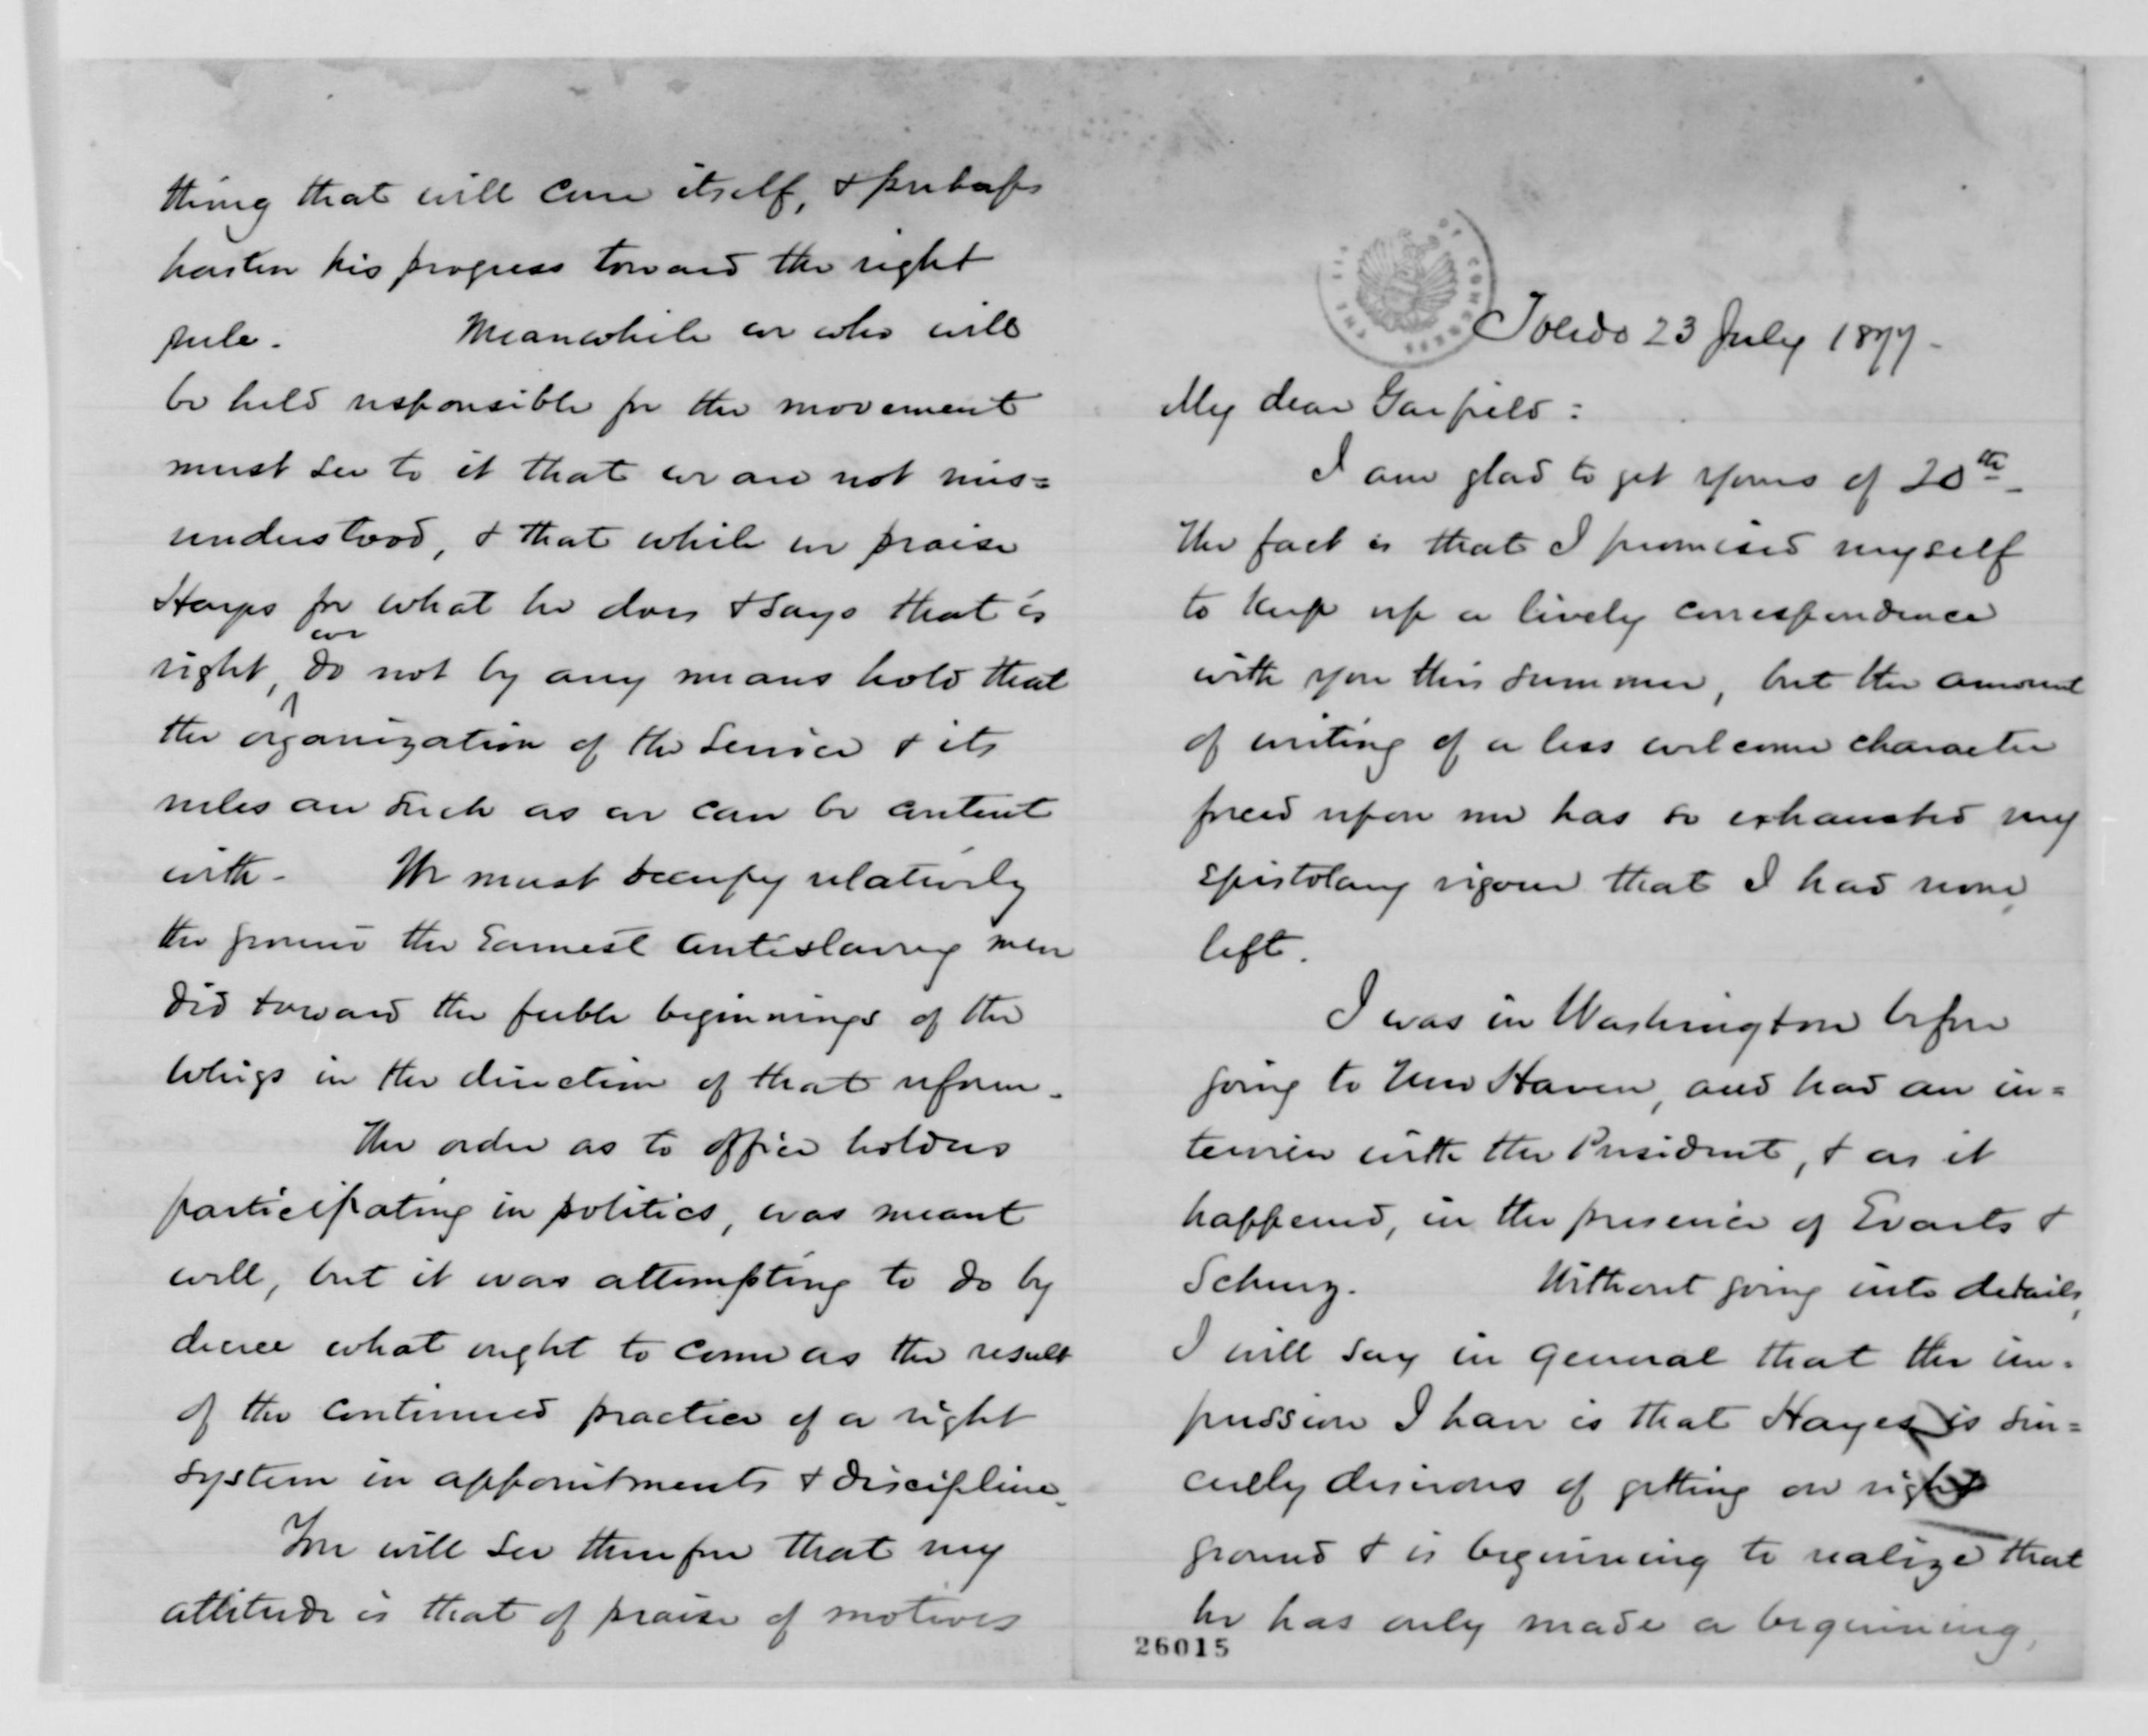 thing that will cure itself, & perhaps
hasten his progress toward the right
rule. Meanwhile we who will
be held responsible for the movement
must see to it that we are not mis=
understood, & that while we praise
Hayes for what he does & says that is
we
right, do not by any means hold that
the organization of the service & its
rules are such as we can be content
with. We must occupy relatively
the ground the earnest antislavery men
did toward the feeble beginnings of the
Whigs in the direction of that reform.
The order as to office holders
participating in politics, was meant
well, but it was attempting to do by
decree what ought to come as the result
of the continued practice of a right
system in appointments & discipline.
You will see therefore that my
attitude is that of praise of motives
Toledo 23 July 1877.
My dear Garfield:
I am glad to get yours of 20th.
The fact is that I promised myself
to keep up a lively correspondence
with you this summer, but the amount
of writing of a less welcome character
forced upon me has so exhausted my
epistolary vigour that I had none
left.
I was in Washington before
going to New Haven, and had an in=
terview with the President, & as it
happened, in the presence of Evarts &
Schurz. Without going into details,
I will say in general that the im=
pression I have is that Hayes is sin=
cerely desirous of getting on right
ground & is beginning to realize that
he has only made a beginning,
26015